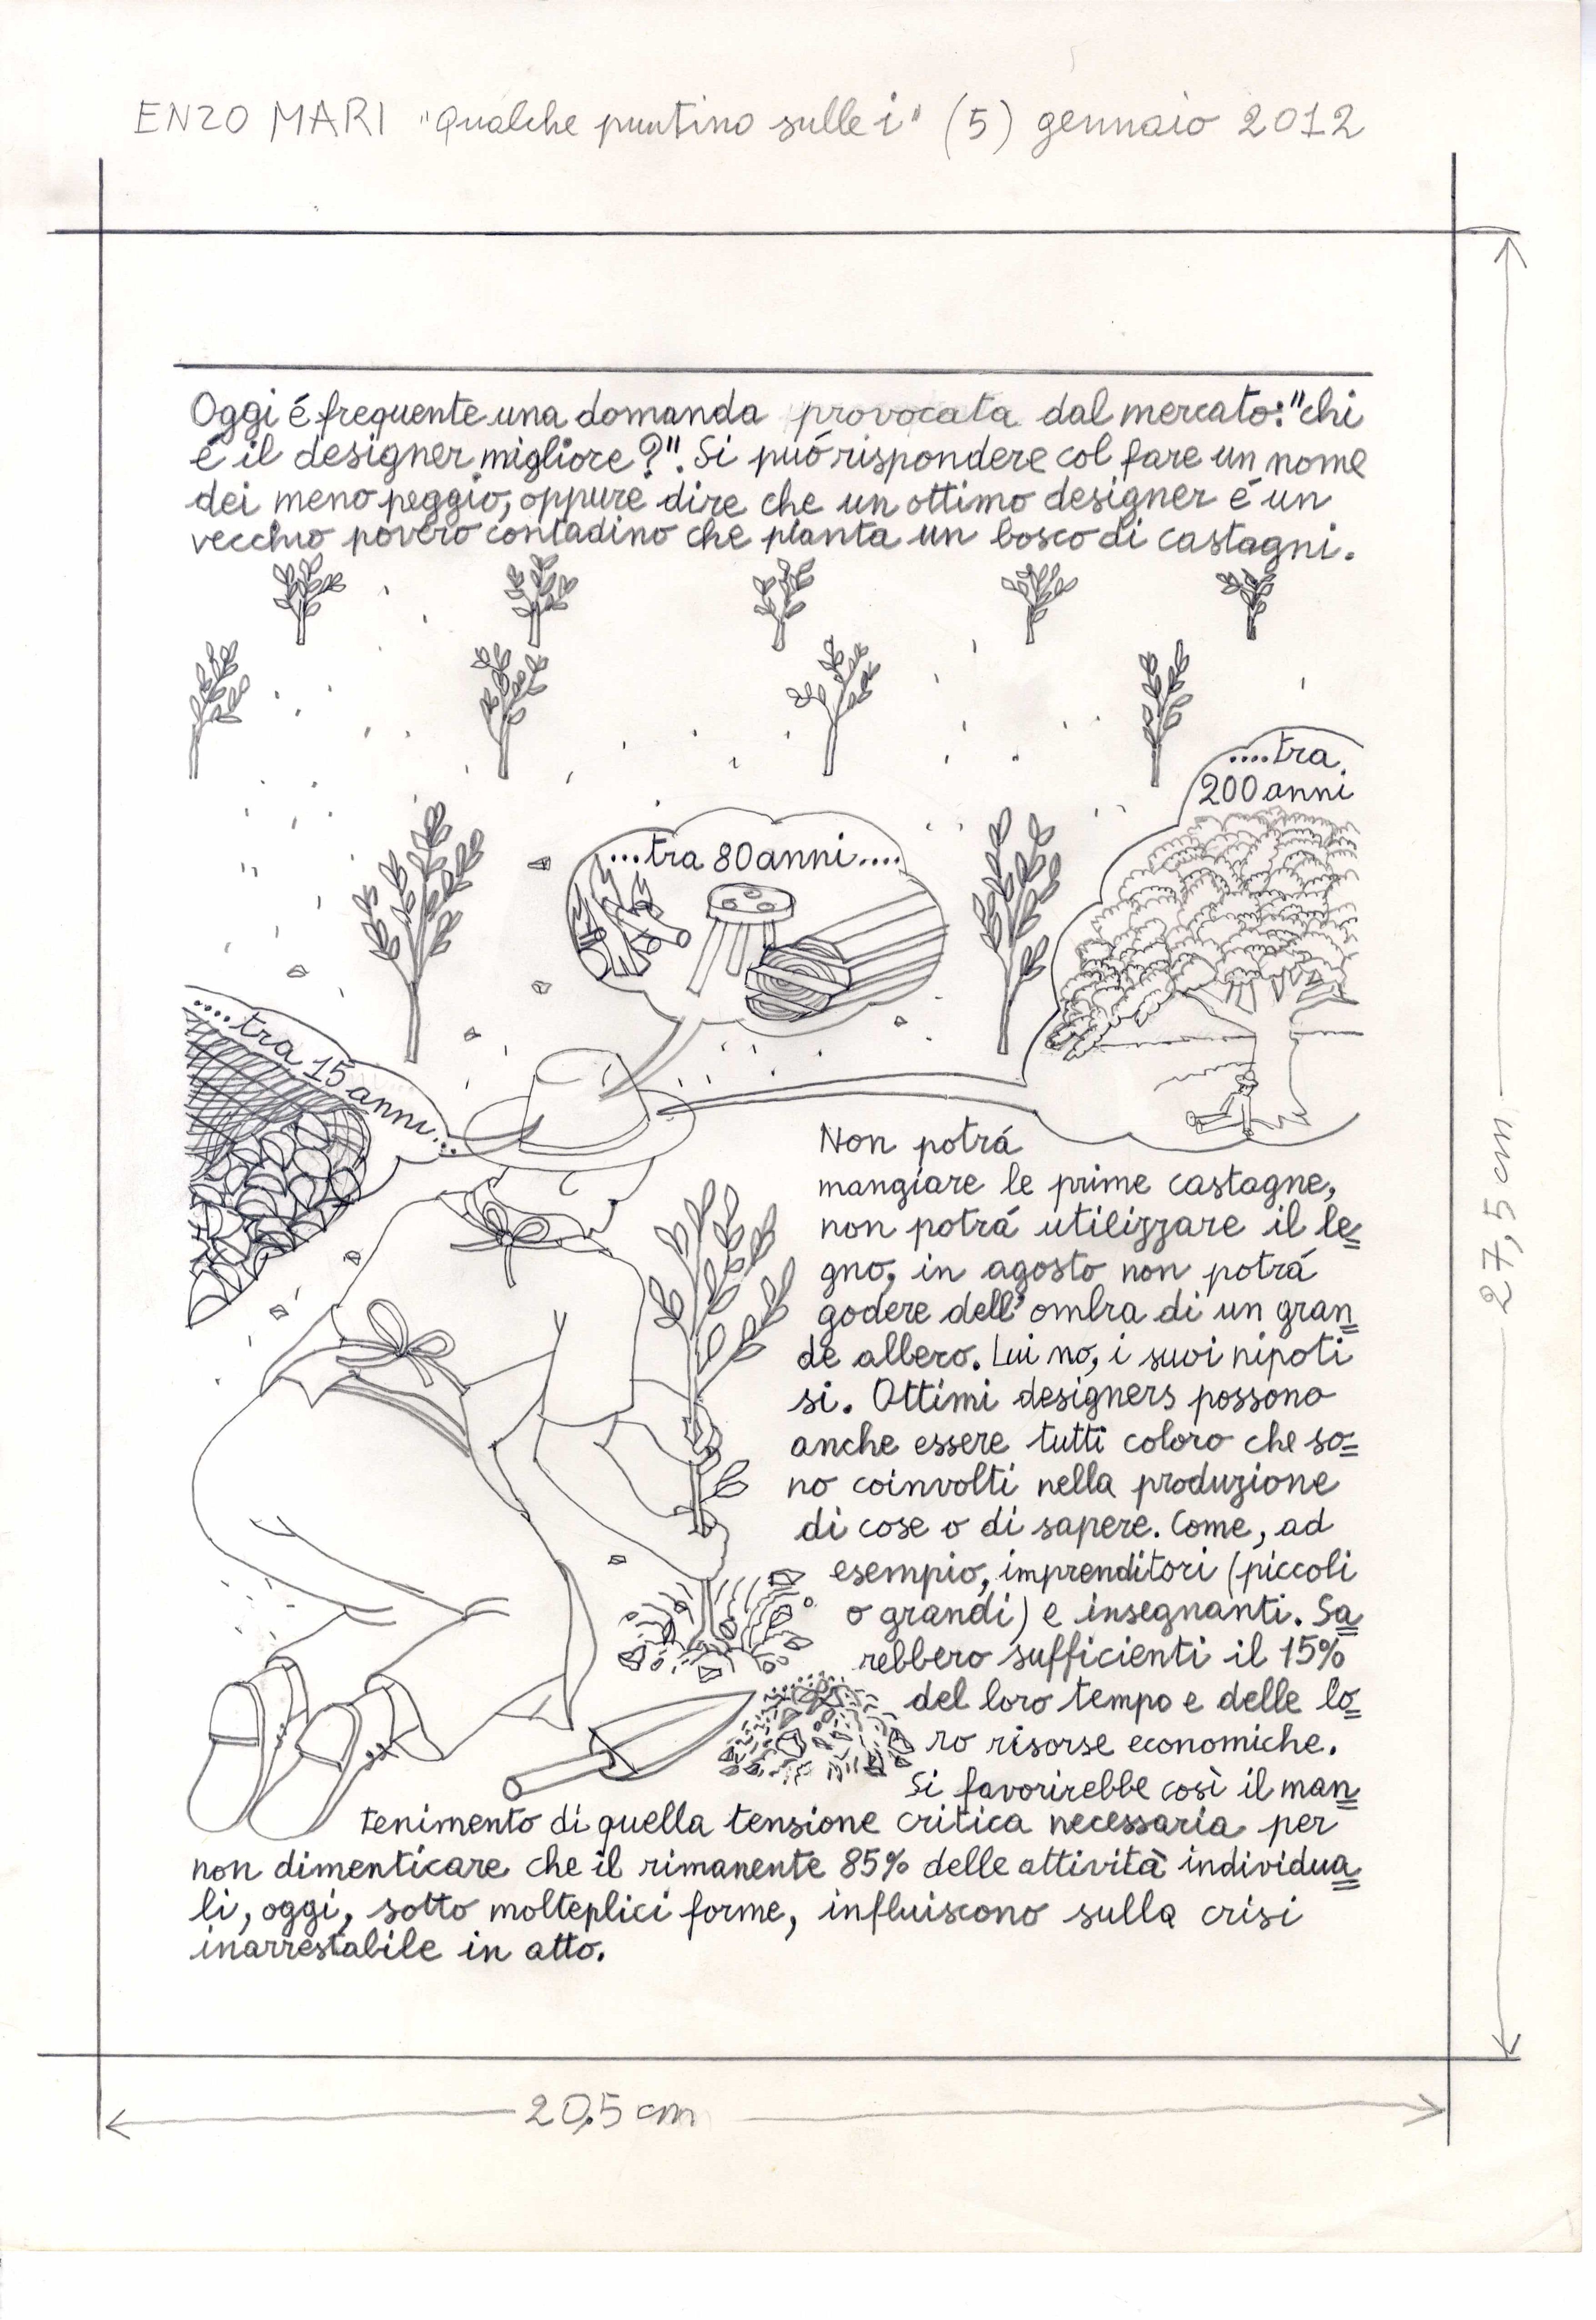 ENZO MARI "Qualche puntino sulle i" (5) gennaio 2012
Oggi é frequente una domanda provocata dal mercato: "chi
é il designer migliore?". Si puó rispondere col fare un nome
dei meno peggio, oppure dire che un ottimo designer é un
vecchio povero contadino che pianta un bosco di castagni.
....tra
200 anni
...tra 80 anni....
....tra 15 anni...
Non potrá
mangiare le prime castagne,
non potrá utilizzare il le=
gno, in agosto non potrá
godere dell'ombra di un gran=
de albero. Lui no, i suoi nipoti
si. Ottimi designers possono
anche essere tutti coloro che so=
no coinvolti nella produzione
di cose o di sapere. Come, ad
esempio, imprenditori (piccoli
o grandi) e insegnanti. Sa=
rebbero sufficienti il 15%
del loro tempo e delle lo=
ro risorse economiche.
Si favorirebbe così il man=
tenimento di quella tensione critica necessaria per
non dimenticare che il rimanente 85% delle attività individua=
li, oggi, sotto molteplici forme, influiscono sulla crisi
inarrestabile in atto.
27,5 cm
20,5 cm